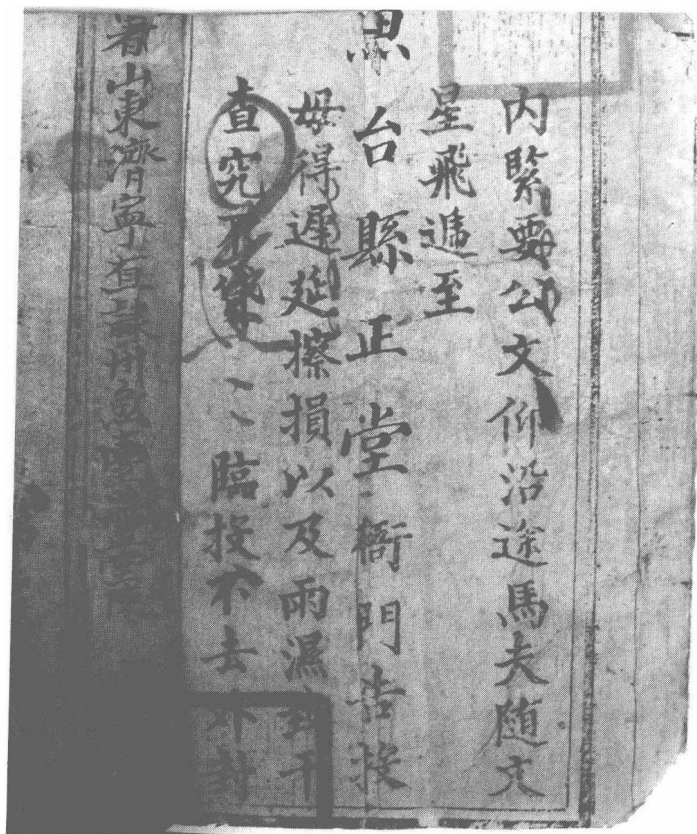 內緊要公文仰沿途馬夫随文
星飛遞至
台縣正堂衙門告投
毋得遲延擦損以及雨濕致干
查究不貸〻〻臨投不去外封
署山東濟寧直隸州魚臺